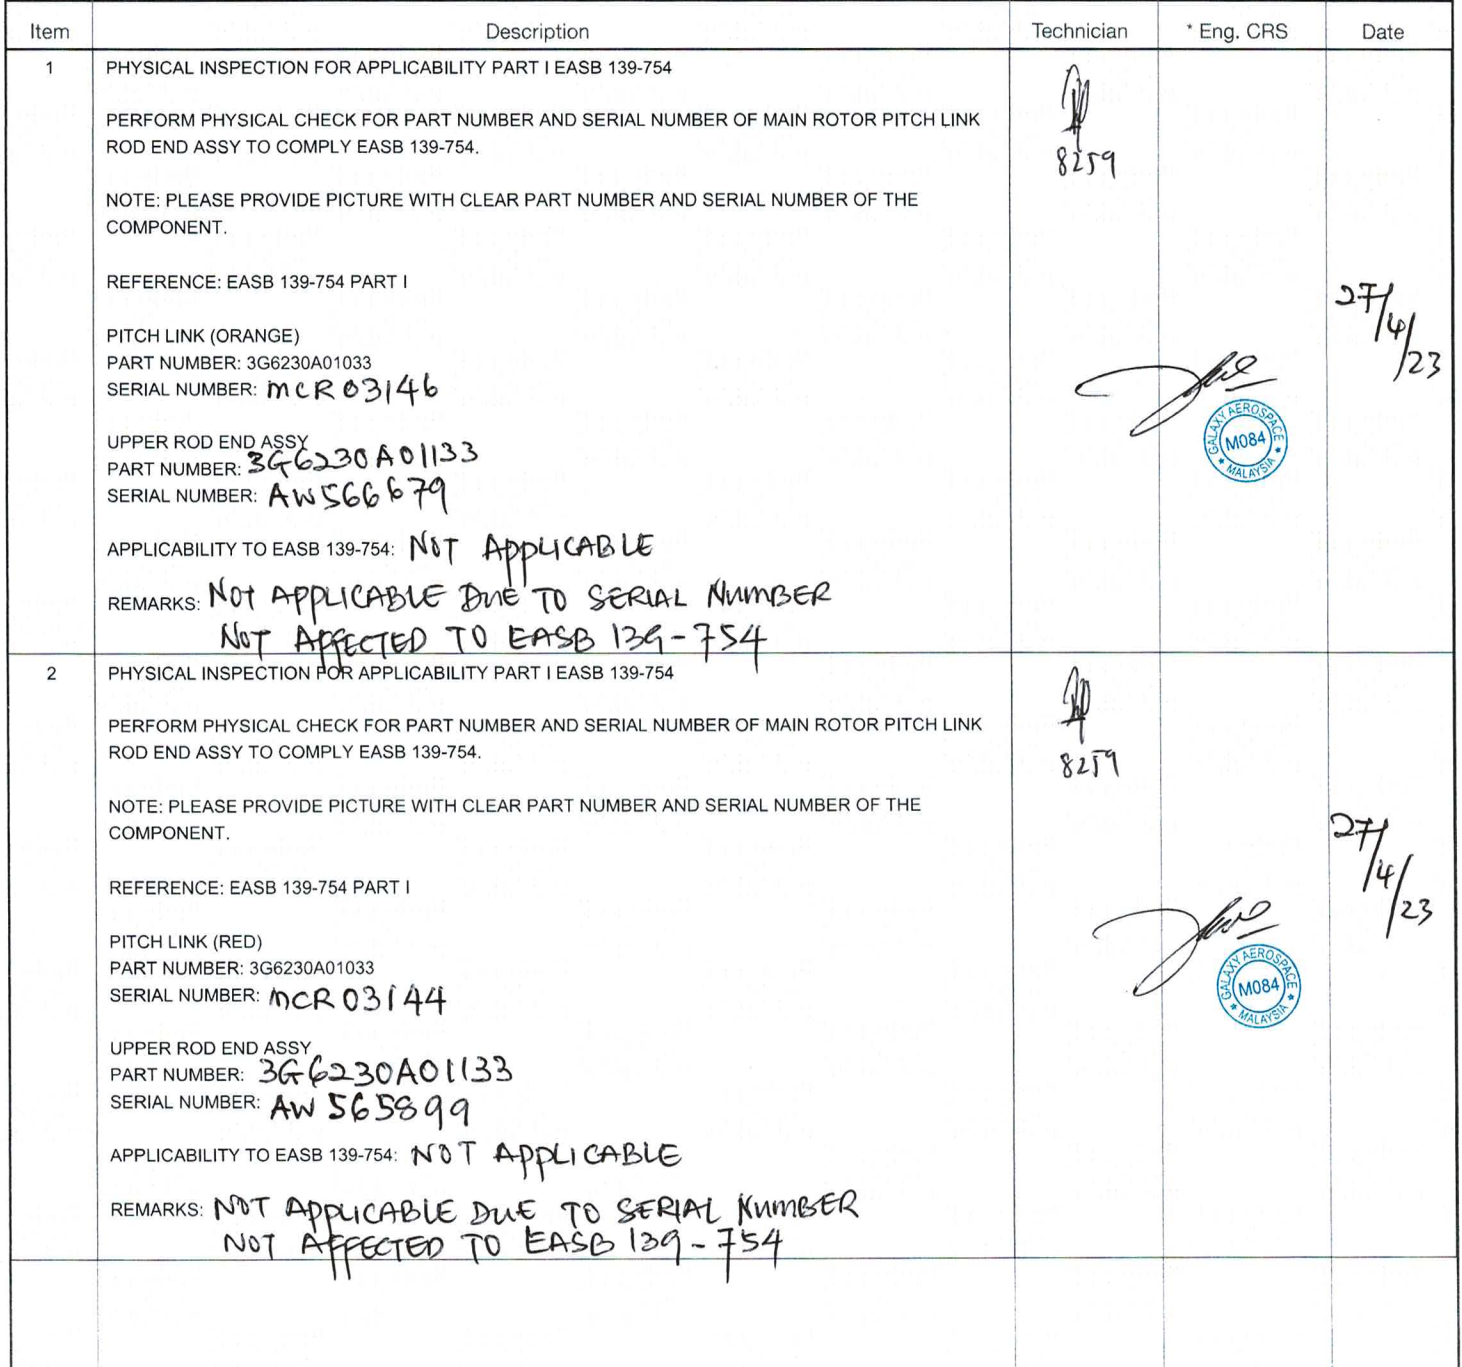 Item Description Technician * Eng. CRS Date
1 PHYSICAL INSPECTION FOR APPLICABILITY PART I EASB 139-754
PERFORM PHYSICAL CHECK FOR PART NUMBER AND SERIAL NUMBER OF MAIN ROTOR PITCH LINK
ROD END ASSY TO COMPLY EASB 139-754.
8259
NOTE: PLEASE PROVIDE PICTURE WITH CLEAR PART NUMBER AND SERIAL NUMBER OF THE
COMPONENT.
REFERENCE: EASB 139-754 PART I
27/4/23
PITCH LINK (ORANGE)
PART NUMBER: 3G6230A01033
SERIAL NUMBER: MCR03146
GALAXY AEROSPACE
M084
* MALAYSIA *
UPPER ROD END ASSY
PART NUMBER: 3G6230A01133
SERIAL NUMBER: AW566679
APPLICABILITY TO EASB 139-754: NOT APPLICABLE
REMARKS: NOT APPLICABLE DUE TO SERIAL NUMBER
NOT AFFECTED TO EASB 139-754
2 PHYSICAL INSPECTION FOR APPLICABILITY PART I EASB 139-754
PERFORM PHYSICAL CHECK FOR PART NUMBER AND SERIAL NUMBER OF MAIN ROTOR PITCH LINK
ROD END ASSY TO COMPLY EASB 139-754.
8259
NOTE: PLEASE PROVIDE PICTURE WITH CLEAR PART NUMBER AND SERIAL NUMBER OF THE
COMPONENT.
27/4/23
REFERENCE: EASB 139-754 PART I
PITCH LINK (RED)
PART NUMBER: 3G6230A01033
SERIAL NUMBER: MCR03144
GALAXY AEROSPACE
M084
* MALAYSIA *
UPPER ROD END ASSY
PART NUMBER: 3G6230A01133
SERIAL NUMBER: AW565899
APPLICABILITY TO EASB 139-754: NOT APPLICABLE
REMARKS: NOT APPLICABLE DUE TO SERIAL NUMBER
NOT AFFECTED TO EASB 139-754